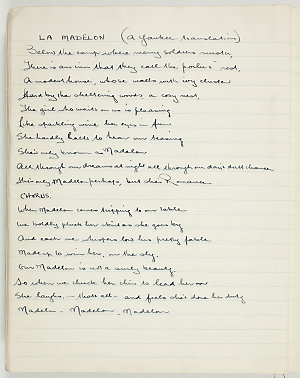 LA MADELON (A Yankee translation)
Below the camp where many soldiers muster
There is an inn that they call the poilus' rest.
A modest house, whose walls with ivy cluster
Hard by the sheltering woods a cosy nest.
The girl who waits on us is pleasing
Like sparkling wine her eyes in fun
She hardly halts to hear our teasing
She's only known as Madelon
All through our dreams at night all through our day's dull chance
She's only Madelon perhaps, but she's Romance
CHORUS.
When Madelon comes tripping to our table
We boldly pluck her skirt as she goes by
And each one whispers low his pretty fable
Made up to win her, on the sly.
Our Madelon is not a surly beauty.
So when we chuck her chin to lead her on
She laughs - that's all - and feels she's done her duty
Madelon - Madelon, Madelon